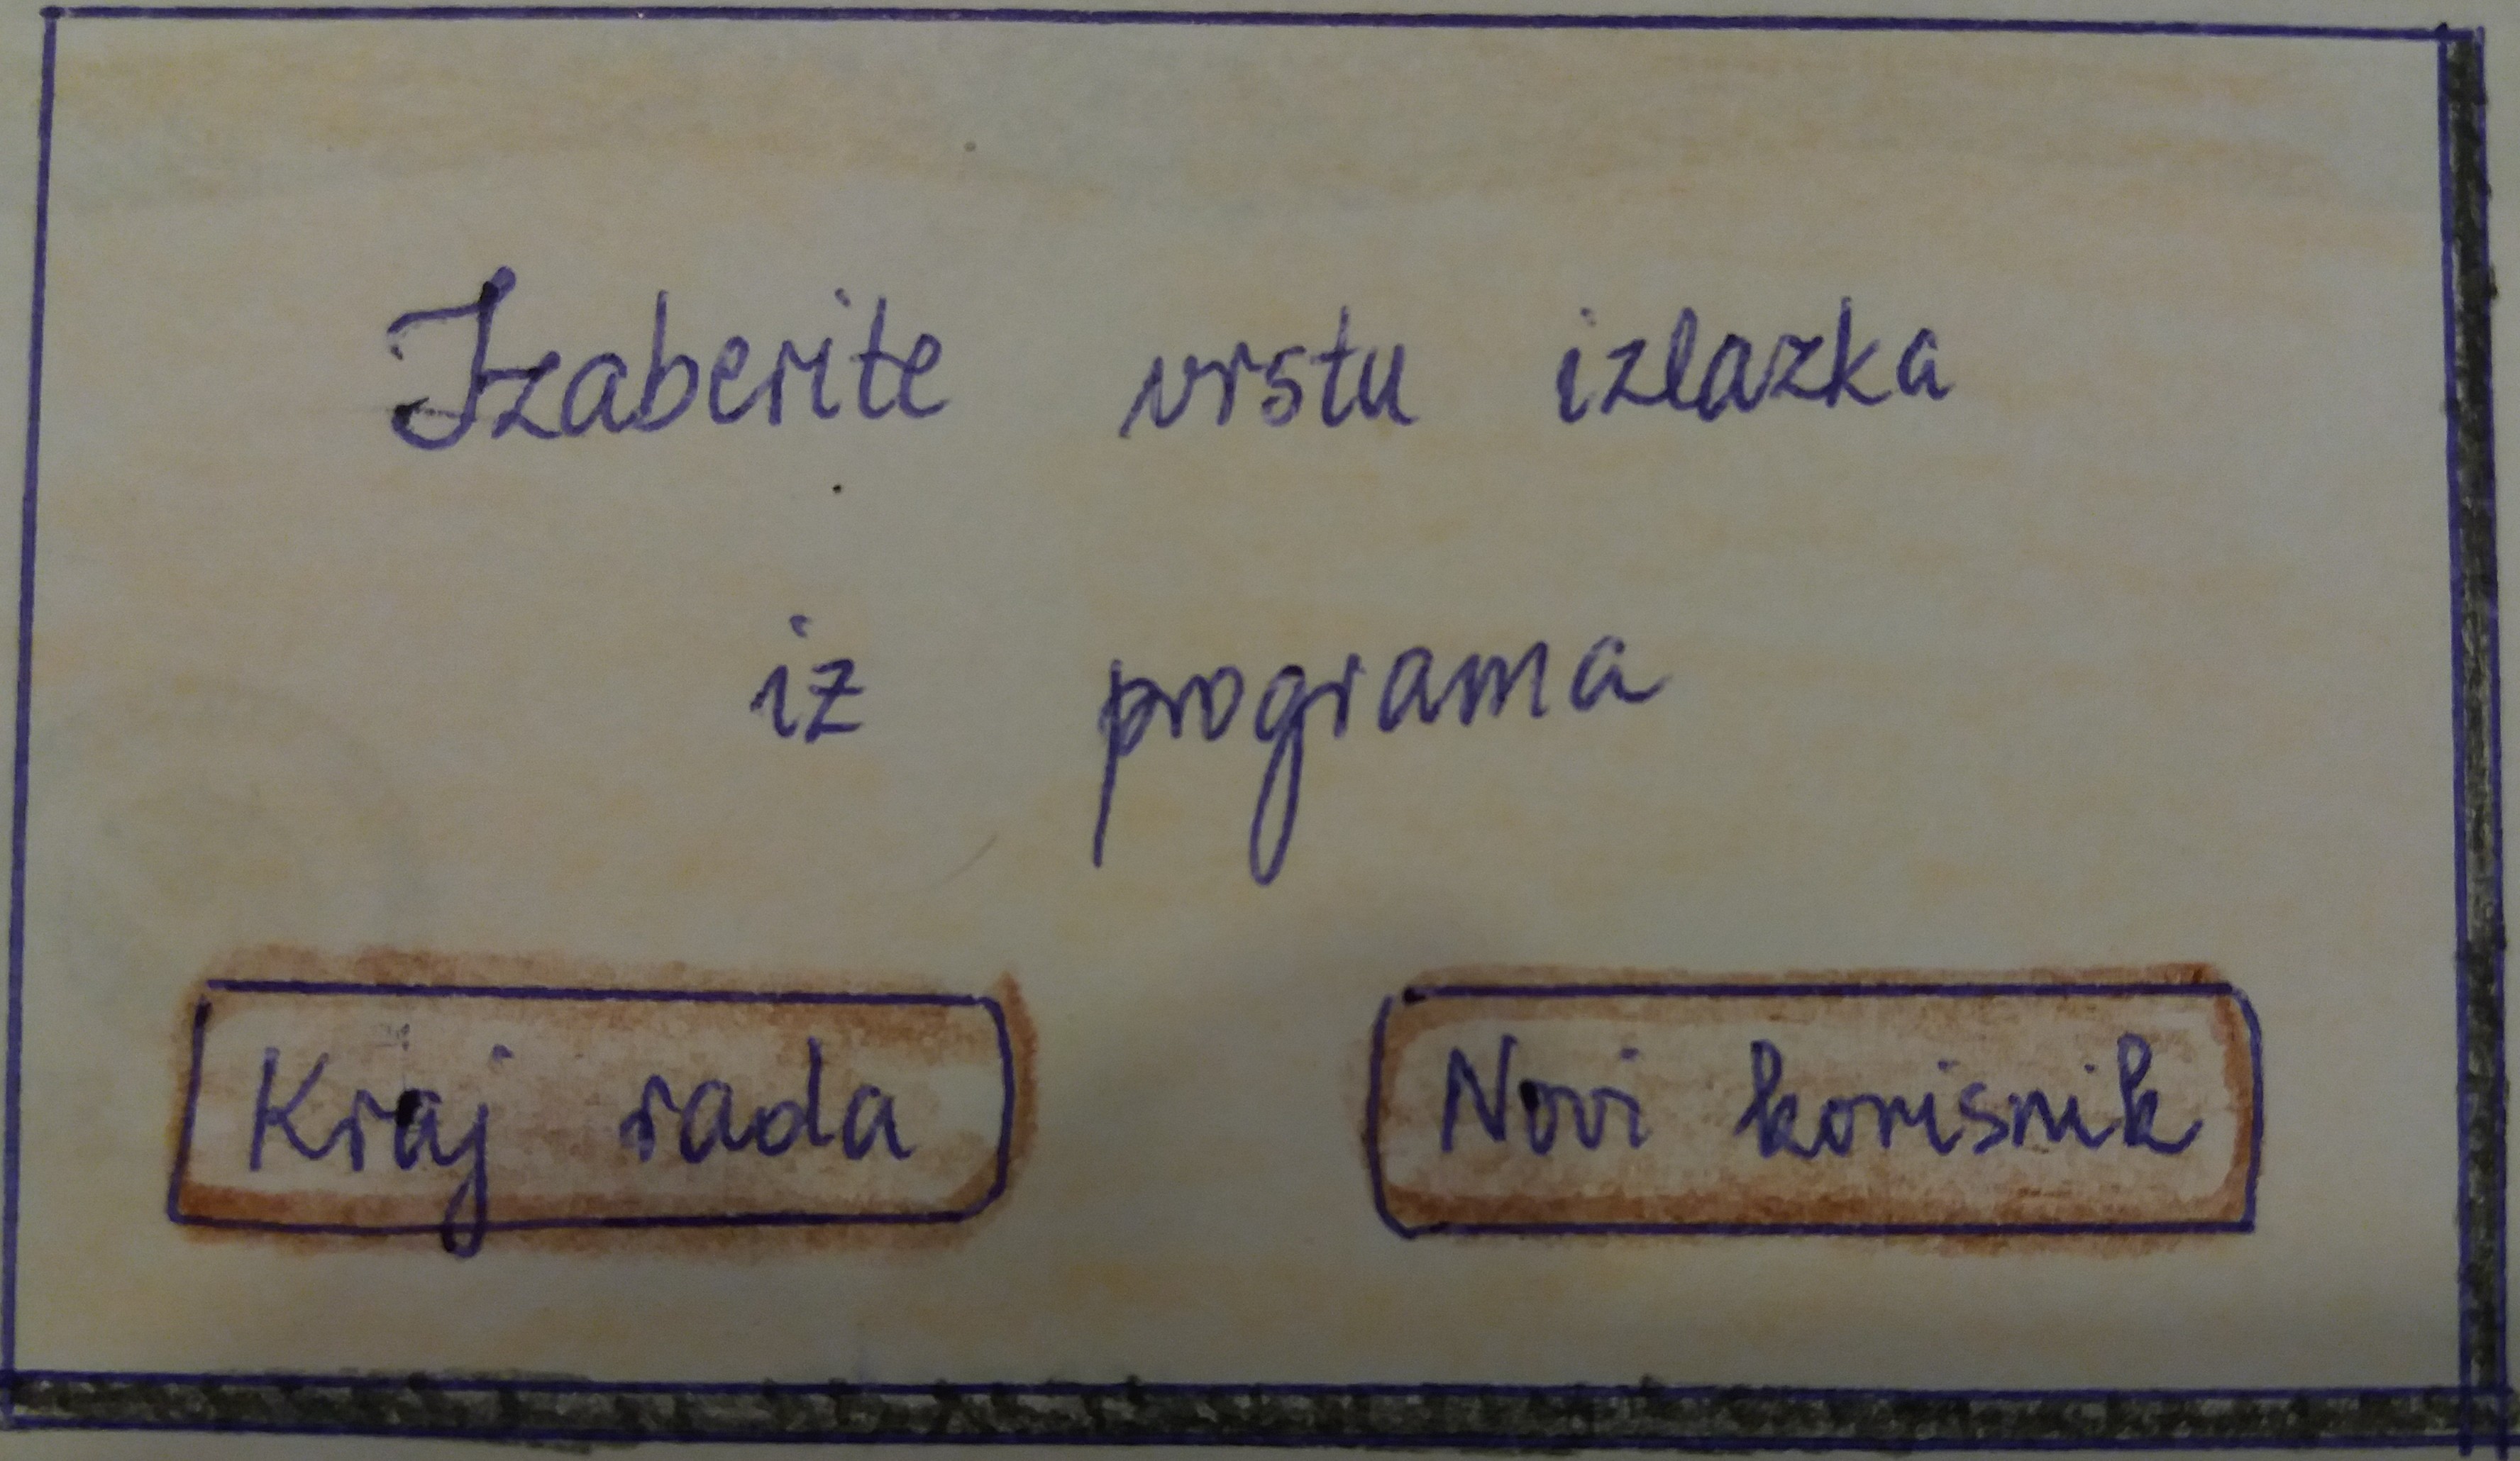 Izaberite vrstu izlazka
iz programa
Kraj rada
Novi korisnik